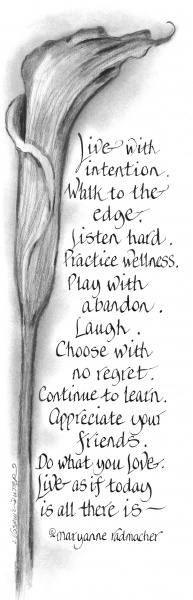 Live with
intention.
Walk to the
edge.
Listen hard.
Practice wellness.
Play with
abandon.
Laugh.
Choose with
no regret.
Continue to learn.
Appreciate your
friends.
Do what you love.
Live as if today
is all there is—
@maryanne radmacher